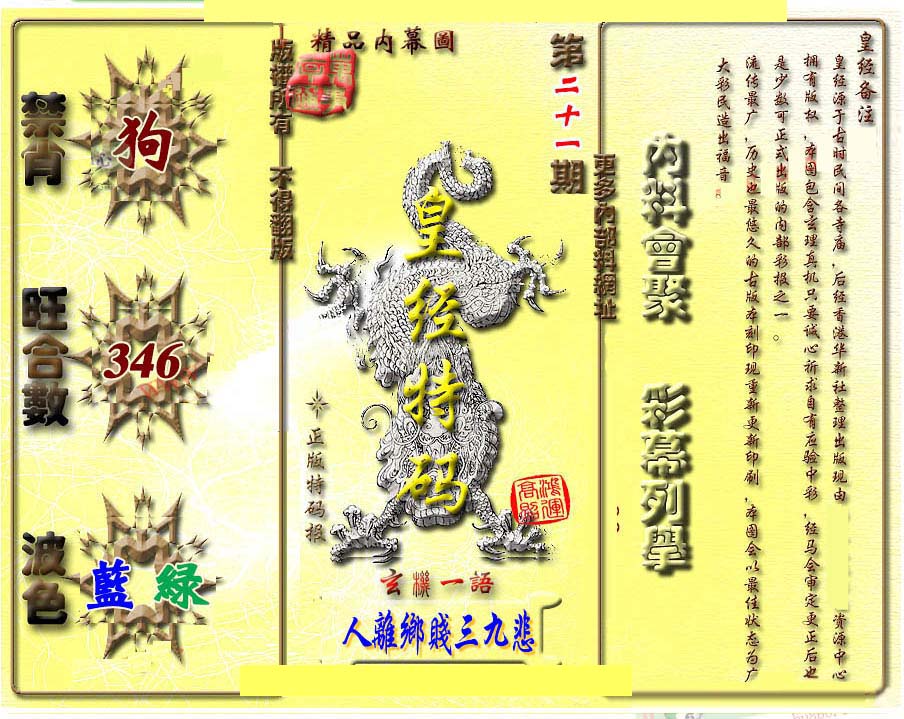 精品内幕圖
版權所有 不得翻版
第二十一期
更多內部料網址
禁肖
狗
旺合數
346
波色
藍 綠
皇经特码
正版特码报
鸿運高照
玄機一語
人離鄉賤三九悲
內料會聚 彩幕列舉
皇经备注
皇经源于古时民间各寺庙,后经香港华新社整理出版现由 资源中心
拥有版权,本图包含玄理真机只要诚心祈求自有应验中彩,经马会审定更正后也
是少数可正式出版的内部彩报之一。
流传最广,历史也最悠久的古版本刻印现重新更新印刷,本图会以最佳状态为广
大彩民造出福音